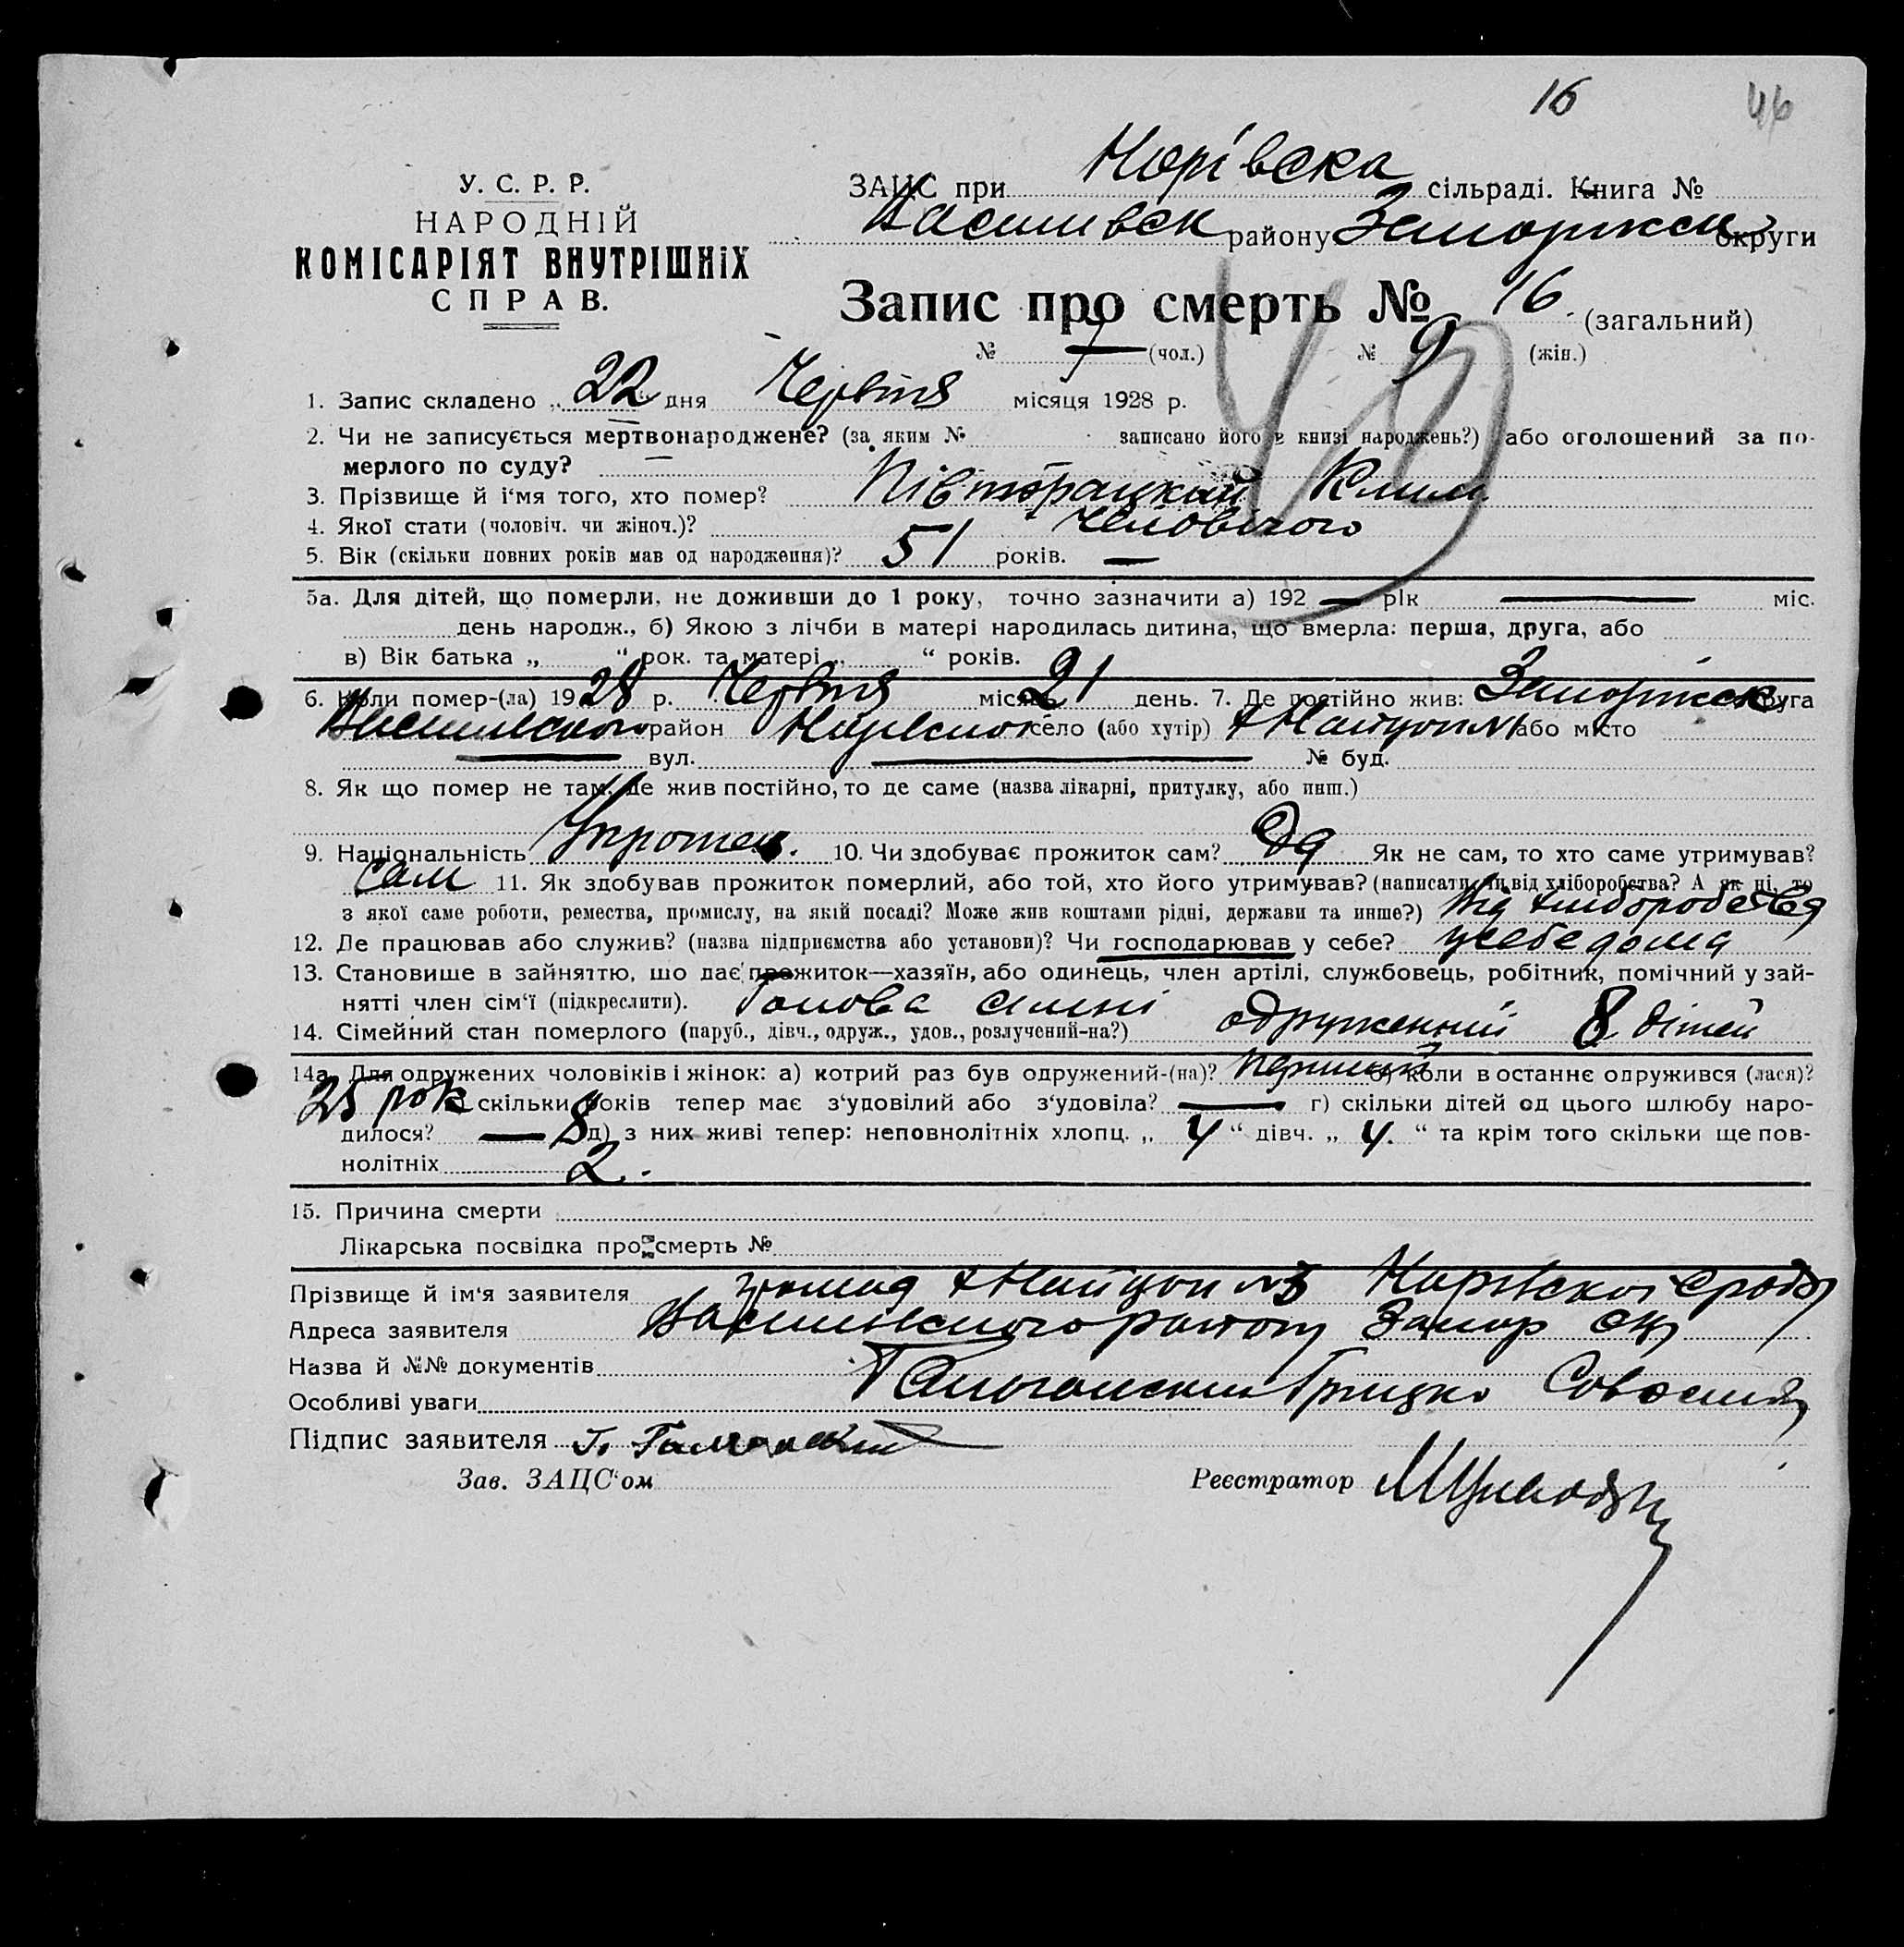 16 46
У. С. Р. Р.
НАРОДНІЙ
КОМІСАРІЯТ ВНУТРІШНІХ
СПРАВ.
ЗАЦС при сільраді. Книга №
району округи
Запис про смерть № 16. (загальний)
№ 7 (чол.) № 9 (жін.)
1. Запис складено „ 22 " дня Червня місяця 1928 р.
2. Чи не записується мертвонароджене? (за яким № записано його в книзі народжень?) або оголошений за по-
мерлого по суду?
3. Прізвище й і'мя того, хто помер? Півторацкий Клим
4. Якої стати (чоловіч. чи жіноч.)? Чоловічого
5. Вік (скільки повних років мав од народження)? 51 років. —
5а. Для дітей, що померли, не доживши до 1 року, точно зазначити а) 192 — рік — міс.
день народж., б) Якою з лічби в матері народилась дитина, що вмерла: перша, друга, або
в) Вік батька „ " рок. та матері „ “ років.
6. Коли помер-(ла) 1928 р. Червня місяць 21 день. 7. Де постійно жив: округа
район село (або хутір) або місто
— вул. — № буд.
8. Як що помер не там, де жив постійно, то де саме (назва лікарні, притулку, або инш.)
9. Національність 10. Чи здобуває прожиток сам? Да Як не сам, то хто саме утримував?
Сам 11. Як здобував прожиток померлий, або той, хто його утримував? (написати: чи від хліборобства? А як ні, то
з якої саме роботи, ремества, промислу, на якій посаді? Може жив коштами рідні, держави та инше?) Від хліборобства
12. Де працював або служив? (назва підприємства або установи)? Чи господарював у себе? усебе дома
13. Становище в зайняттю, шо дає прожиток—хазяїн, або одинець, член артілі, службовець, робітник, помічний у зай-
нятті член сім'ї (підкреслити). Голова сімні
14. Сімейний стан померлого (паруб., дівч., одруж., удов., розлучений-на?) одруженний 8 дітей
14а. Для одружених чоловіків і жінок: а) котрий раз був одружений-(на)? перший б) коли востаннє одружився (лася)?
25 рок скільки років тепер має з'удовілий або з'удовіла? — г) скільки дітей од цього шлюбу наро-
дилося? — 8 д) з них живі тепер: неповнолітніх хлопц. „ 4 “ дівч. „ 4. “ та крім того скільки ще пов-
нолітніх 2.
15. Причина смерти
Лікарська посвідка про смерть №
Прізвище й ім'я заявителя
Адреса заявителя
Назва й №№ документів
Особливі уваги Грицко
Підпис заявителя
Зав. ЗАЦС'ом Реєстратор